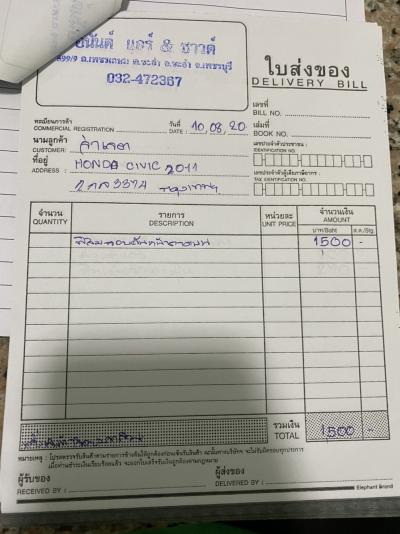 อนันต์ แอร์ & ซาวด์
899/9 ถ.เพชรเกษม ต.ชะอำ อ.ชะอำ จ.เพชรบุรี
032-472367
ใบส่งของ
DELIVERY BILL
เลขที่
BILL NO.
ทะเบียนการค้า
COMMERCIAL REGISTRATION
วันที่
DATE : 10,08,20
เล่มที่
BOOK NO.
นามลูกค้า
CUSTOMER:
เลขประจำตัวประชาชน :
IDENTIFICATION NO.
ที่อยู่
ADDRESS : HONDA CIVIC 2011
เลขประจำตัวผู้เสียภาษีอากร :
TAX IDENTIFICATION NO.
กรุงเทพฯ
จำนวน
QUANTITY
รายการ
DESCRIPTION
หน่วยละ
UNIT PRICE
จำนวนเงิน
AMOUNT
บาท/Baht
ส.ต./Stg.
1500 -
รวมเงิน
TOTAL
1500 -
หมายเหตุ : โปรดตรวจรับสินค้าตามรายการข้างต้นให้ถูกต้องก่อนเซ็นรับสินค้า ฉะนั้นทางบริษัทฯ จะไม่รับผิดชอบทุกประการ
เมื่อท่านชำระเงินเรียบร้อยแล้ว จะออกใบเสร็จรับเงินถูกต้องตามกฎหมาย
ผู้รับของ
RECEIVED BY :
ผู้ส่งของ
DELIVERED BY :
Elephant Brand